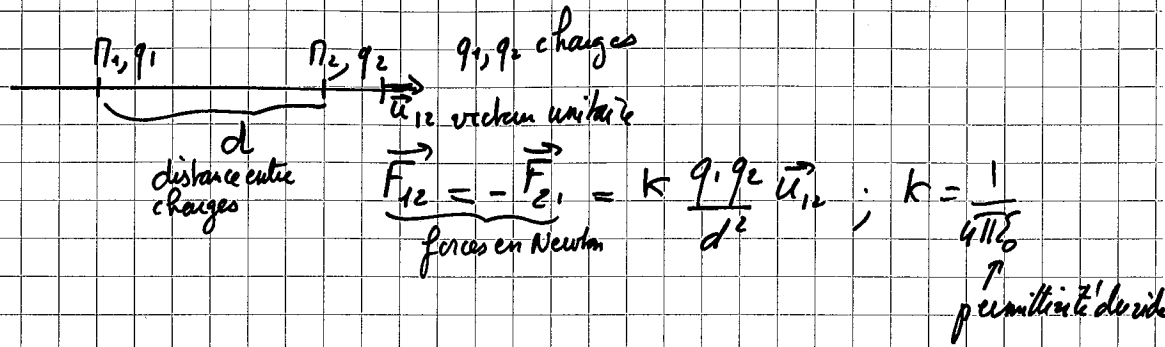 M₁, q₁ M₂, q₂ q₁, q₂ charges
u⃗₁₂ vecteur unitaire
d
distance entre
charges
F⃗₁₂ = - F⃗₂₁ = K q₁q₂/d² u⃗₁₂ ; K = 1/4πε₀
forces en Newton
permittivité du vide